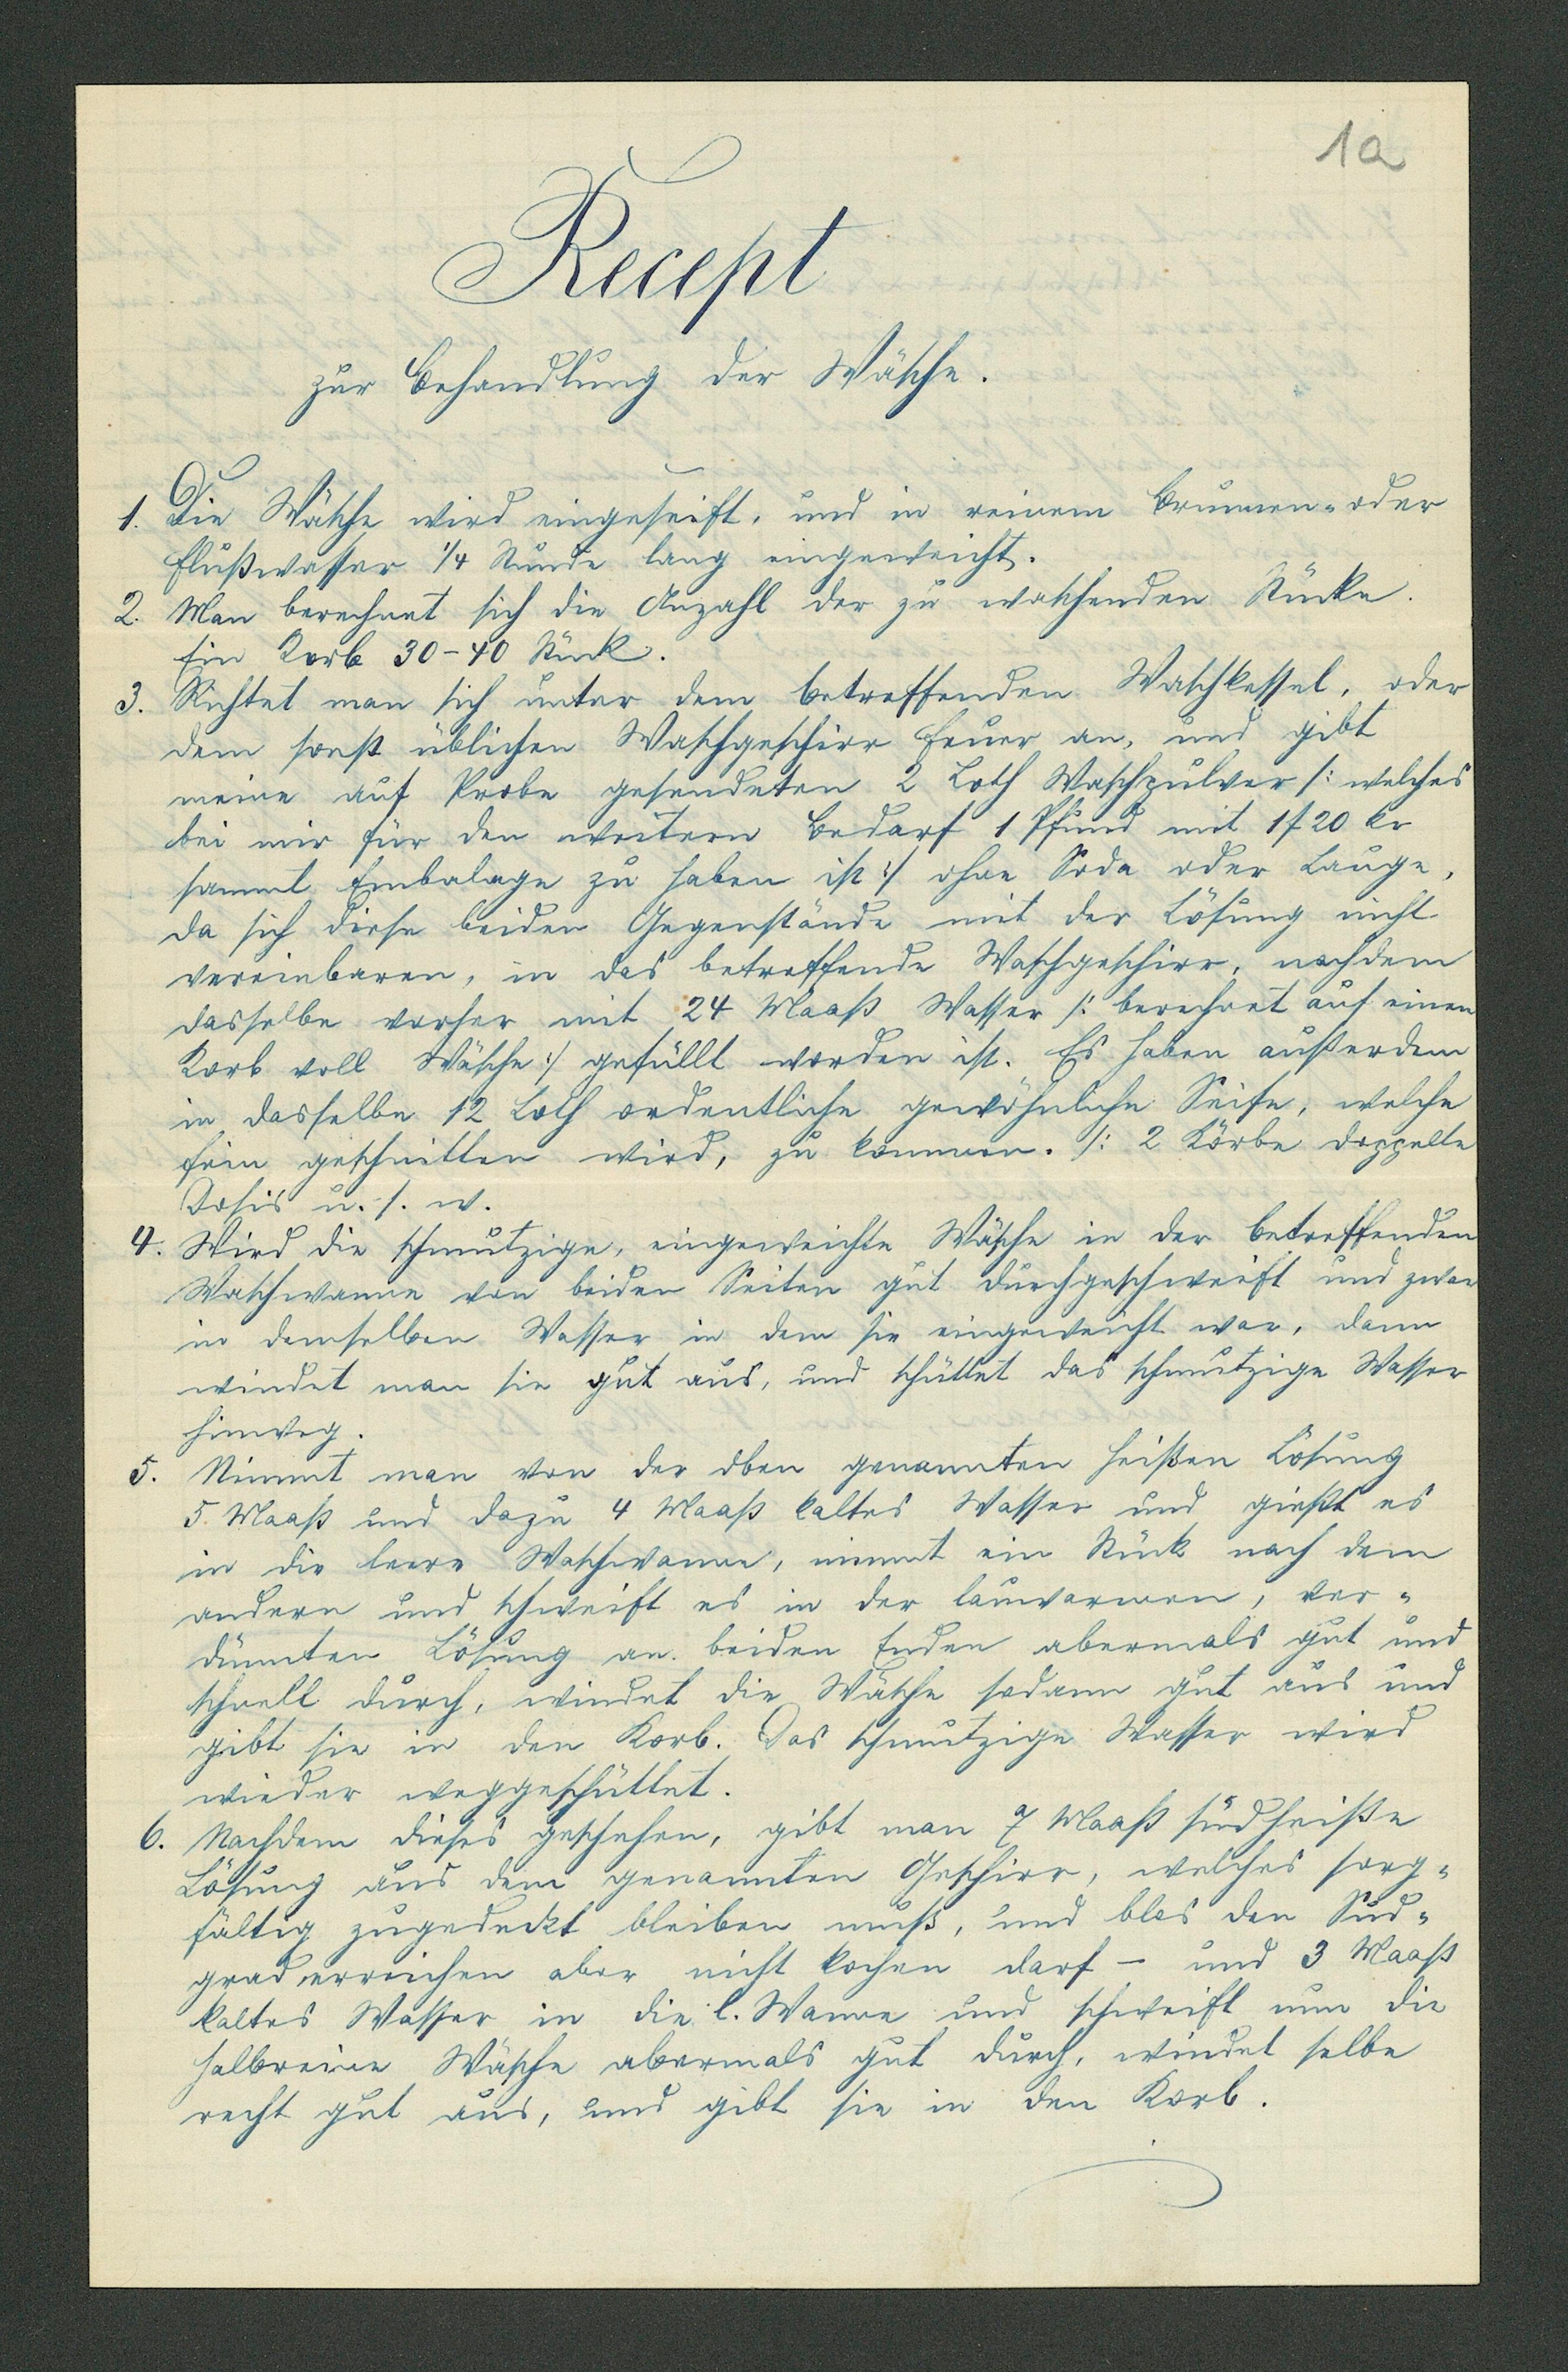 1a
Recept
zur Behandlung der Wäsche.
1. Die Wäsche wird eingeseift, und in reinem Brunnen- oder
Flußwasser 1/4 Stunde lang eingeweicht.
2. Man berechnet sich die Anzahl der zu waschenden Stücke.
Ein Korb 30-40 Stück.
3. Richtet man sich unter dem betreffenden Waschkessel, oder
dem sonst üblichen Waschgeschirr Feuer an, und gibt
meine auf Probe gesendeten 2 Loth Waschpulver /: welches
bei mir für den weitern Bedarf 1 Pfund mit 1 f 20 kr
sammt Embalage zu haben ist :/ ohne Soda oder Lauge,
da sich diese beiden Gegenstände mit der Lösung nicht
vereinbaren, in das betreffende Waschgeschirr, nachdem
dasselbe vorher mit 24 Maaß Wasser /: berechnet auf einen
Korb voll Wäsche :/ gefüllt worden ist. Es haben außerdem
in dasselbe 12 Loth ordentliche gewöhnliche Seife, welche
fein geschnitten wird, zu kommen. /: 2 Körbe doppelte
Dosis u. s. w.
4. Wird die schmutzige, eingeweichte Wäsche in der betreffenden
Waschwanne von beiden Seiten gut durchgeschweift und zwar
in demselben Wasser in dem sie eingeweicht war, dann
windet man sie gut aus, und schüttet das schmutzige Wasser
hinweg.
5. Nimmt man von der oben genannten heißen Lösung
5 Maaß und dazu 4 Maaß kaltes Wasser und gießt es
in die leere Waschwanne, nimmt ein Stück nach dem
andern und schweift es in der lauwarmen, ver-
dünnten Lösung an beiden Enden abermals gut und
schnell durch, windet die Wäsche sodann gut aus und
gibt sie in den Korb. Das schmutzige Wasser wird
wieder weggeschüttet.
6. Nachdem dieses geschehen, gibt man 7 Maaß südheiße
Lösung aus dem genannten Geschirr, welches sorg-
fältig zugedeckt bleiben muß, und blos den Sud-
grad erreichen aber nicht kochen darf - und 3 Maaß
kaltes Wasser in die l. Wanne und schweift nun die
halbreine Wäsche abermals gut durch, windet selbe
recht gut aus, und gibt sie in den Korb.